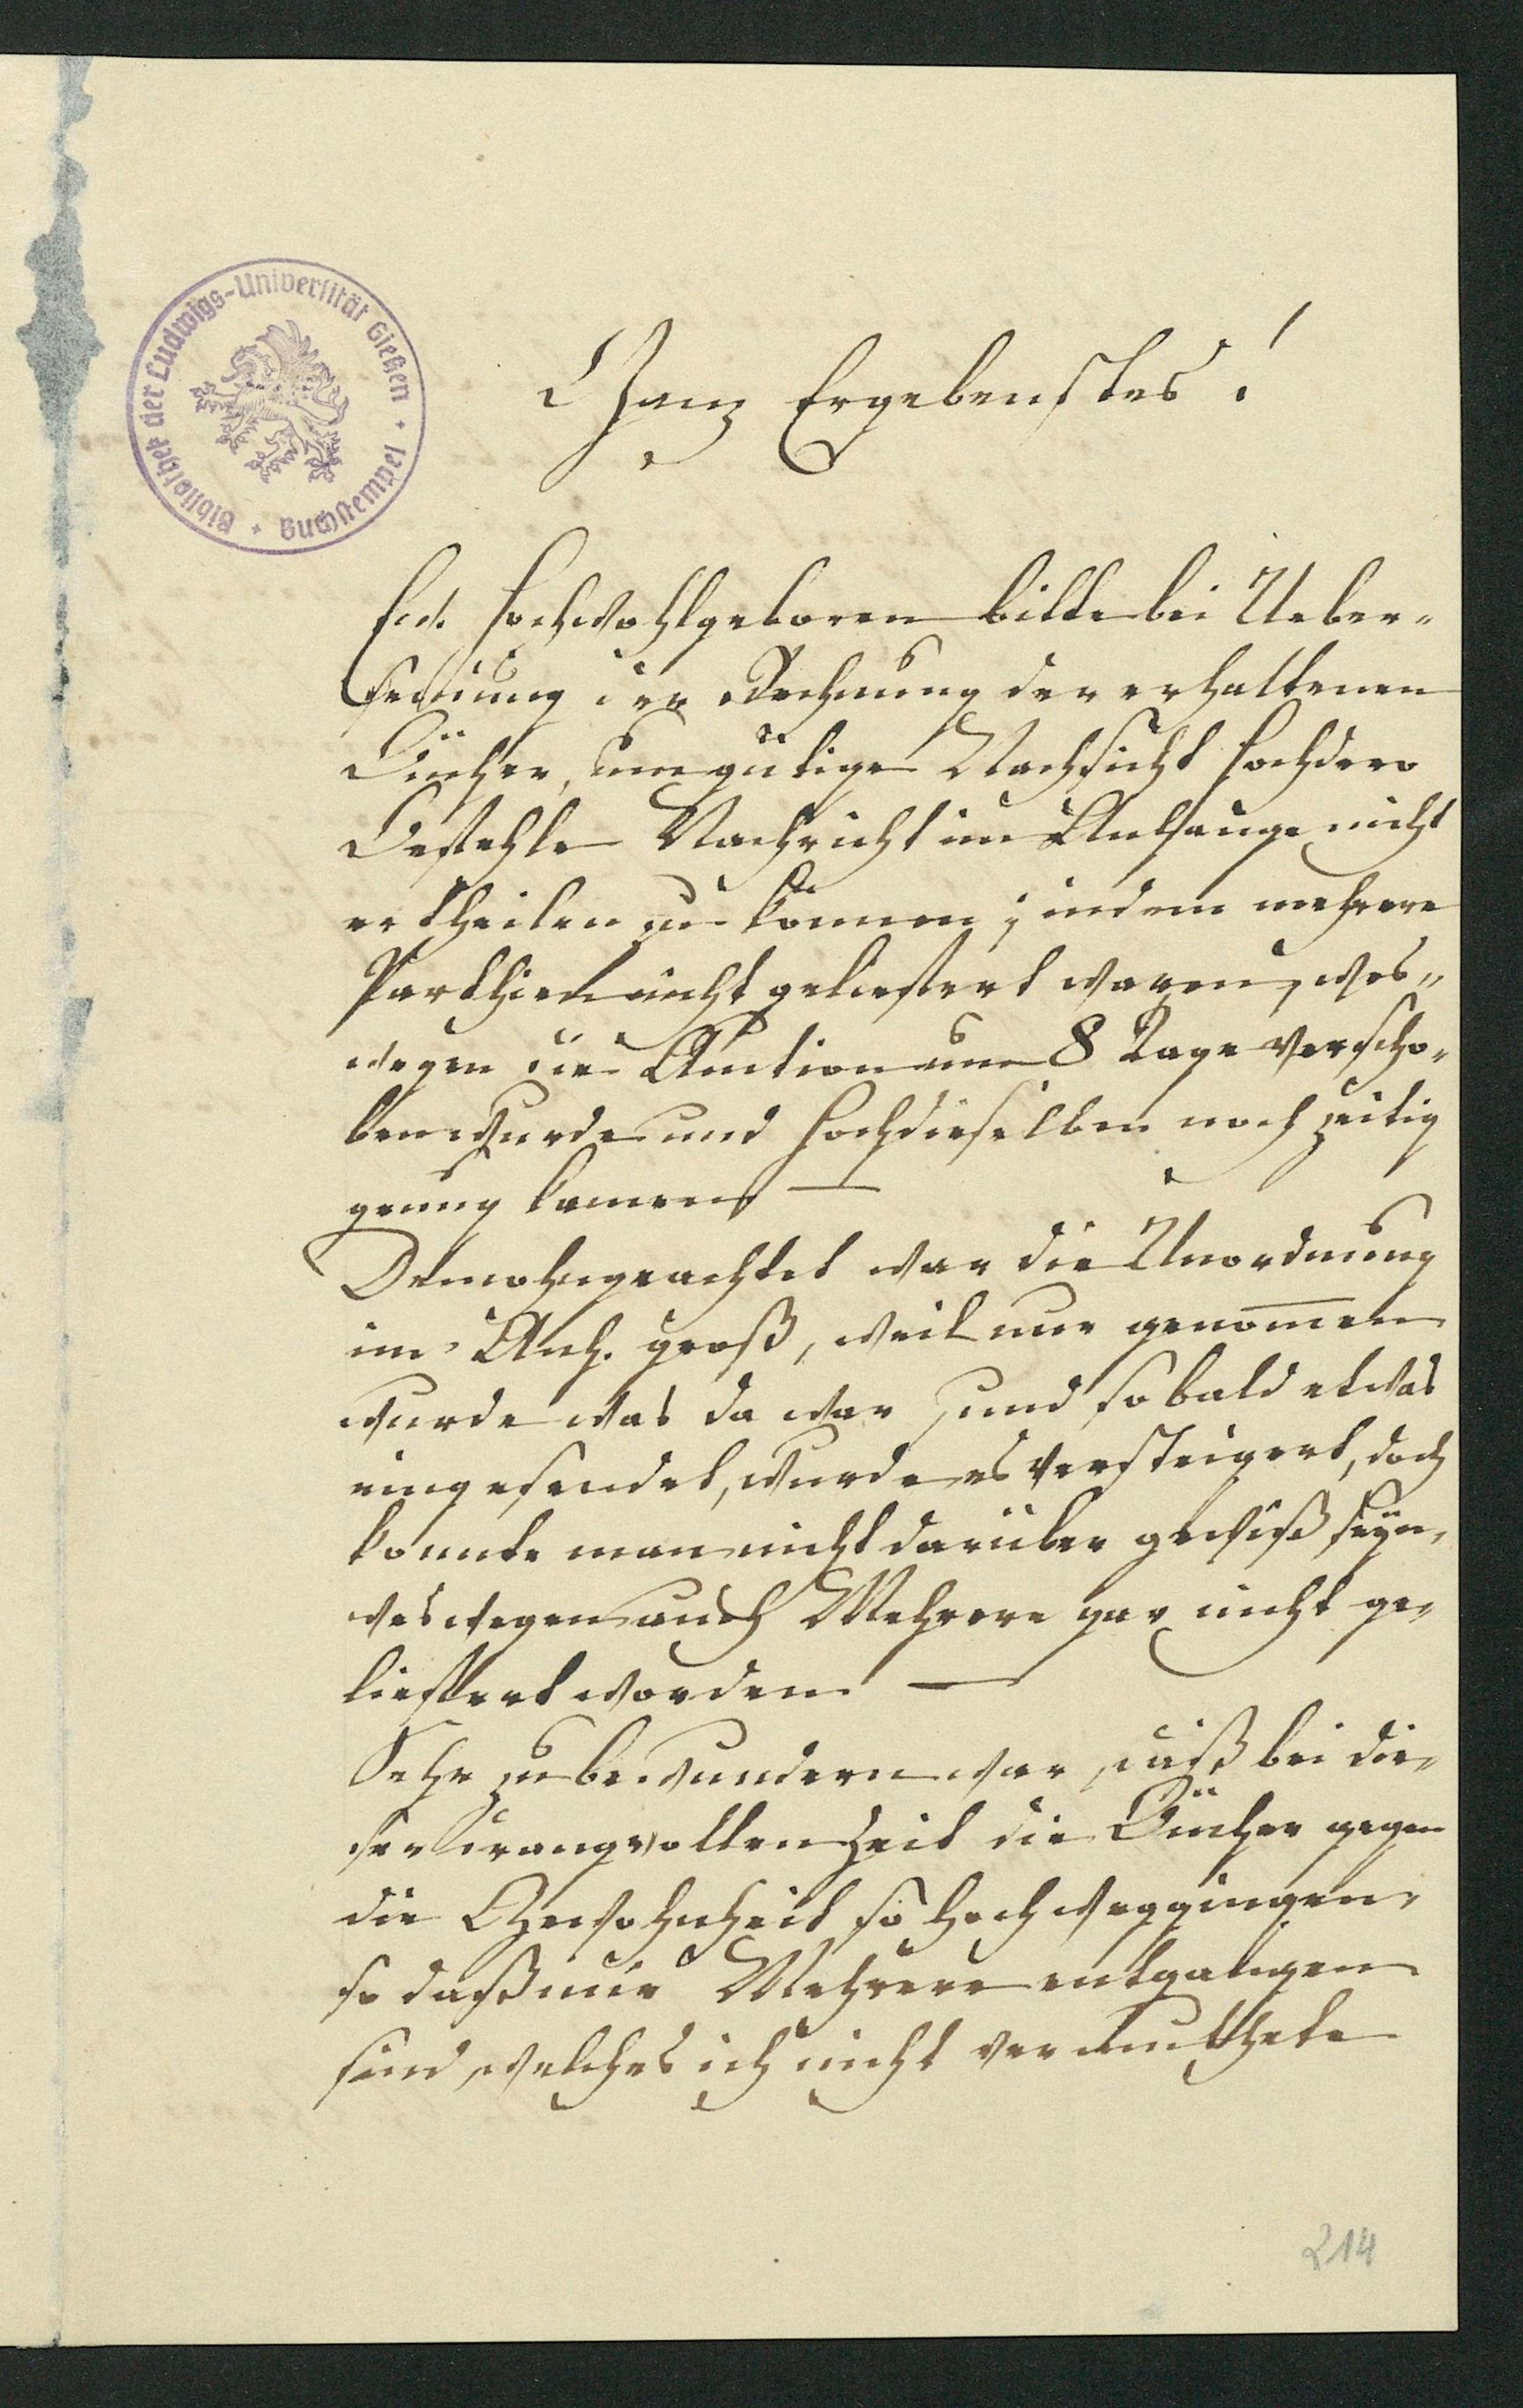 Bibliothek der Ludwigs-Universität Gießen + Buchstempel +
Ganz Ergebenstes!
Ew. Hochwohlgeboren bitte bei Ueber-
sendung der Rechnung der erhaltenen
Bücher, um gütige Nachsicht Hochdero
Befehle Nachricht im Anfange nicht
ertheilen zu können; indem mehrere
Parthien nicht geliefert waren, wes-
wegen die Auction um 8 Tage verscho-
ben wurde und Hochdieselben noch zeitig
genug kamen —
Demohngeachtet war die Unordnung
im Anf. groß, weil nur genom̅en
wurde was da war und so bald etwas
eingesendet, wurde es versteigert, doch
konnte man nicht darüber gewiß seyn,
weswegen auch Mehrere gar nicht ge-
liefert worden —
Sehr zu bewundern war, daß bei die-
ser drangvollen Zeit die Bücher gegen
die Gewohnheit so hoch weggingen,
so daß mir Mehrere entgangen
sind, welches ich nicht vermuthete
214